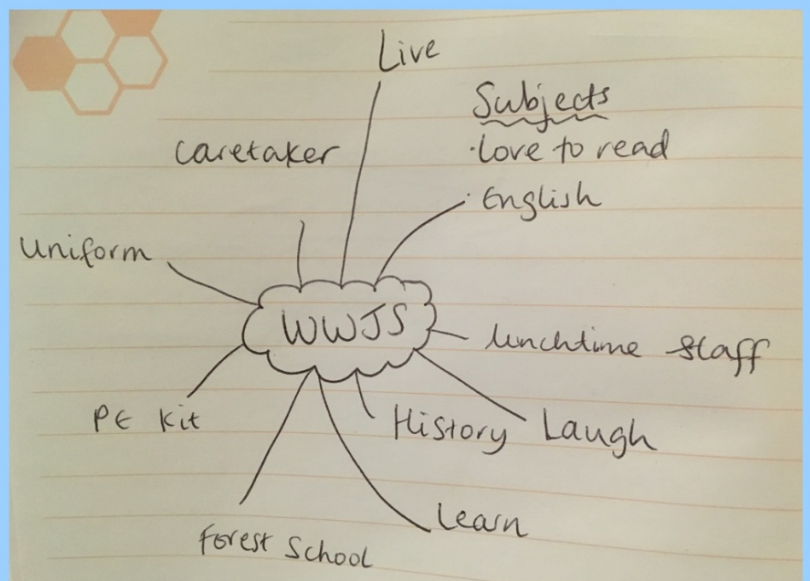 Live
Subjects
·Love to read
· English
Caretaker
Uniform
WWJS
lunchtime staff
PE Kit
History
Laugh
Learn
Forest School